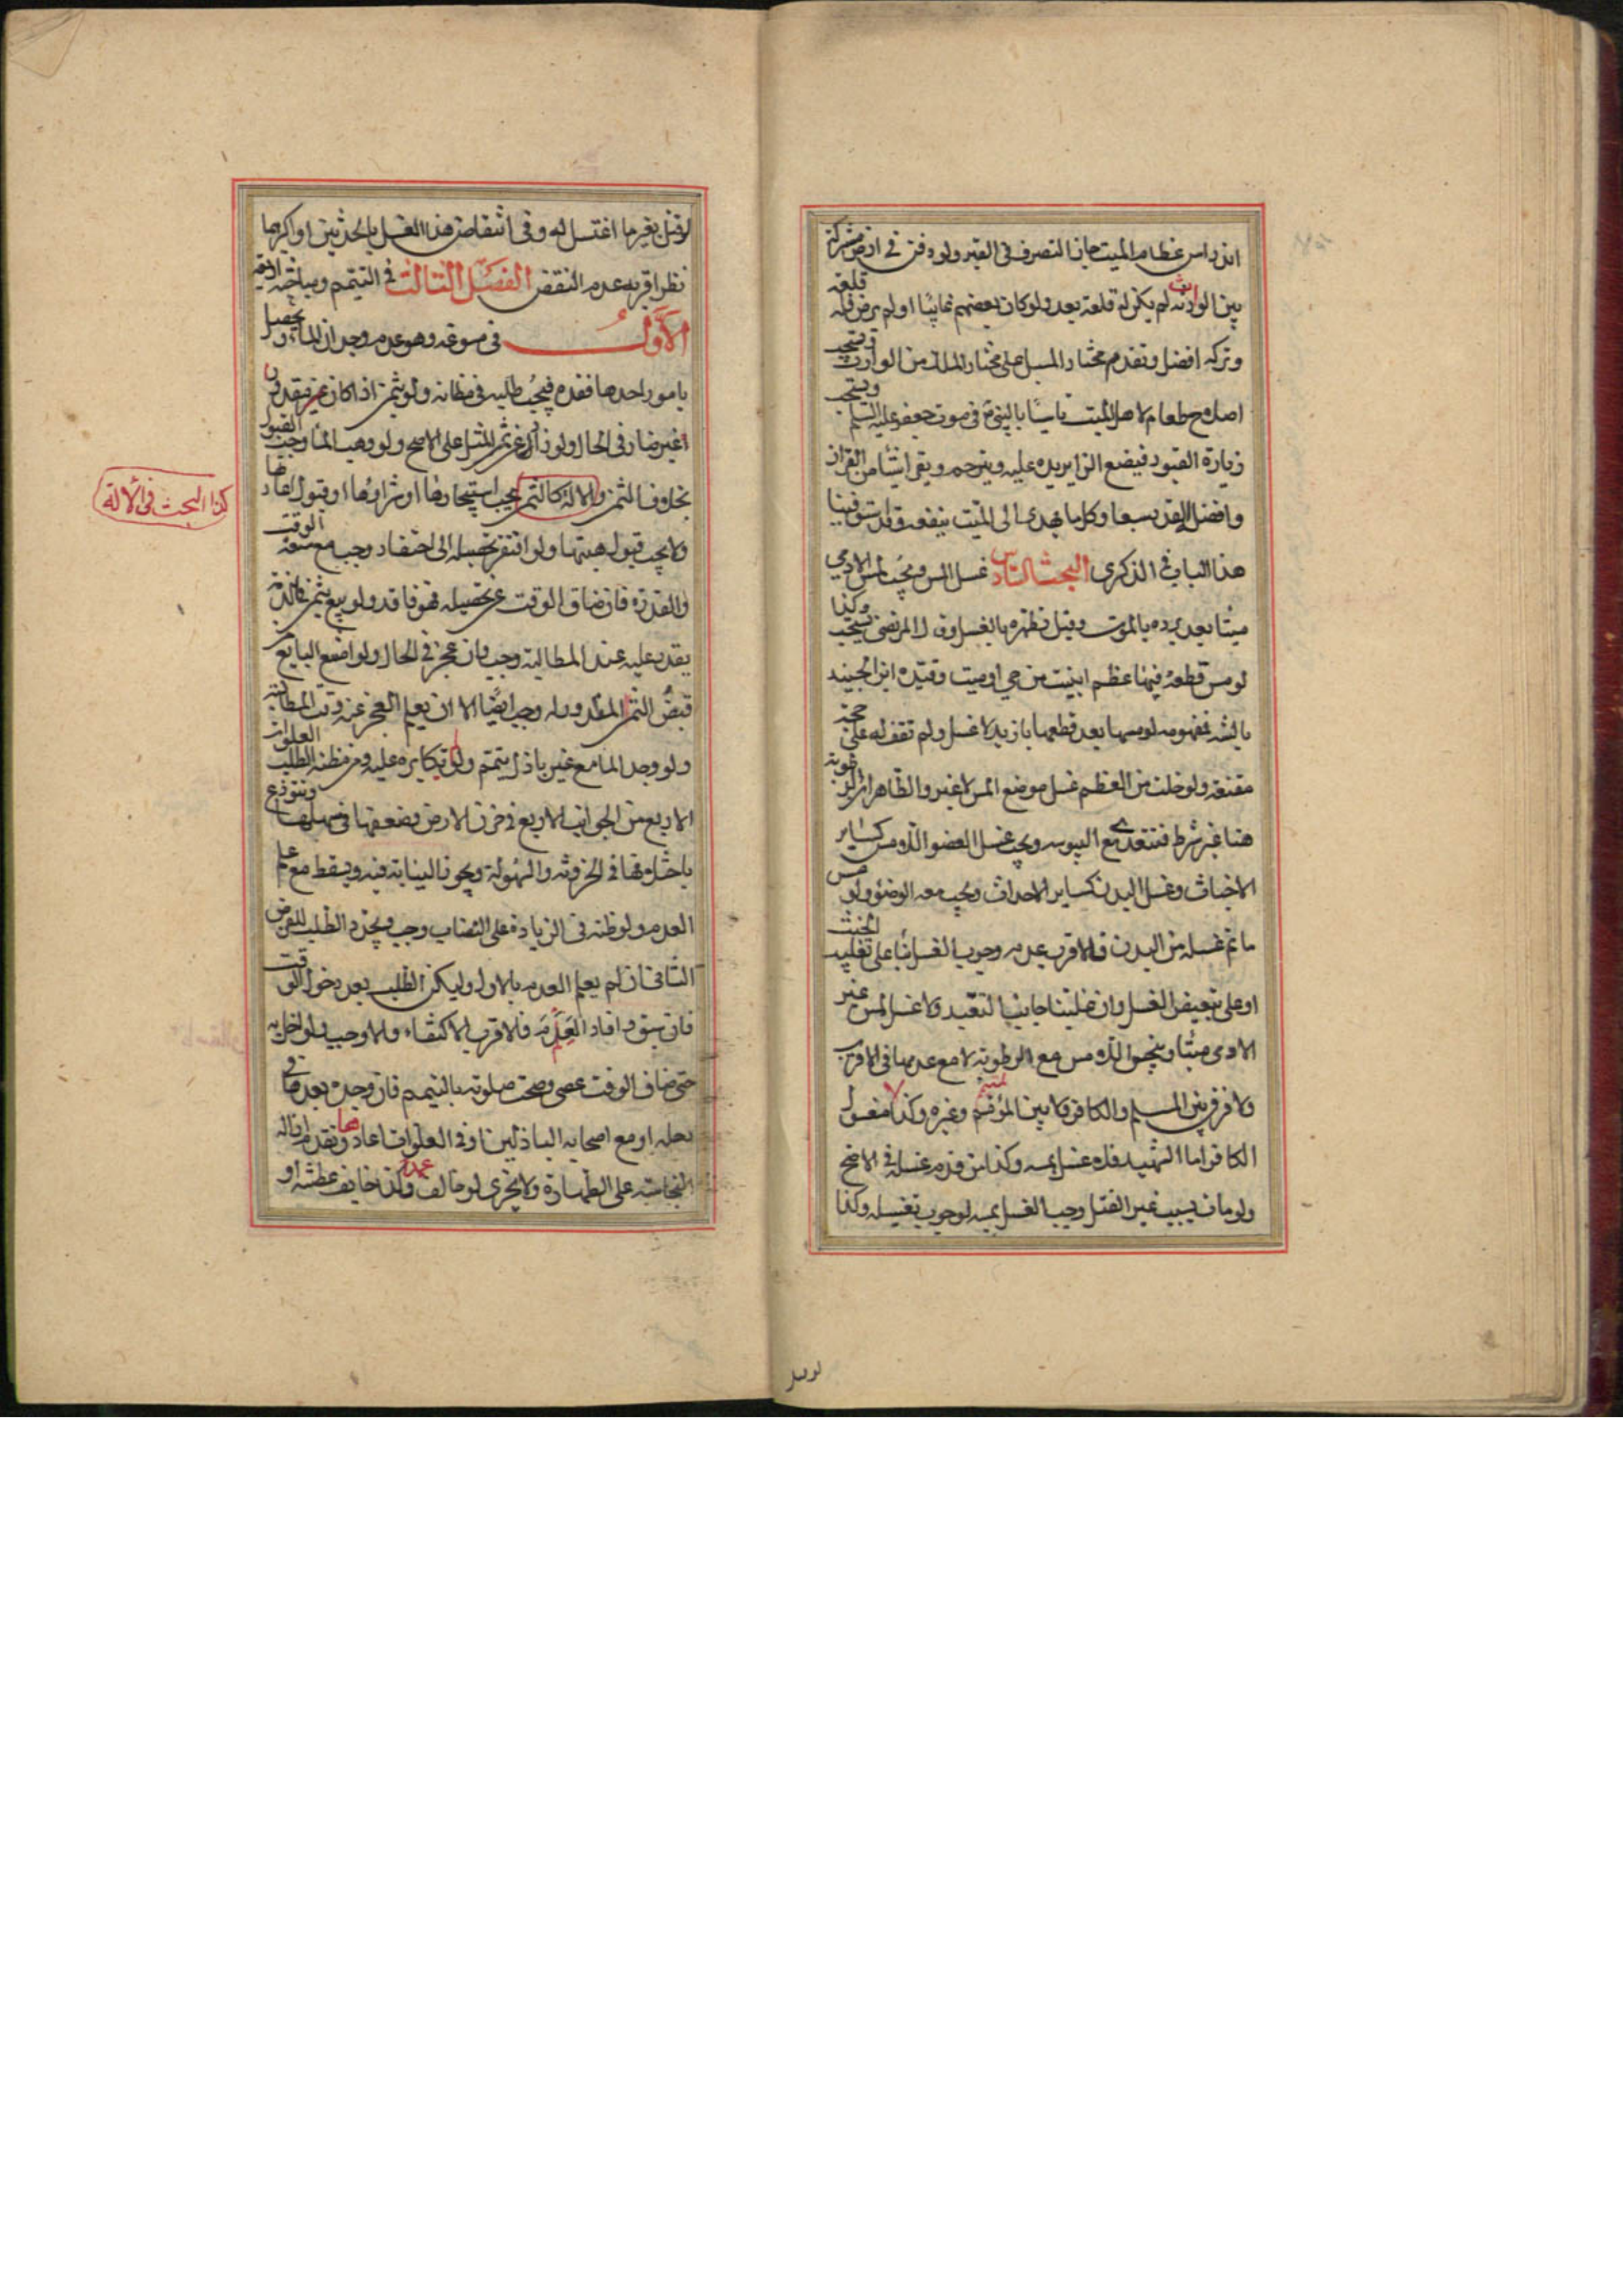 اندراس عظام الميت جاز التصرف في القبر ولو دفن في ارض مشتركة
بين الورثة لم يكن له قلعه بعد ولو كان بعضهم غائبا او لم يرض فله قلعه
وتركه افضل وتقدم مختار المسبل على مختار الملك من الوارث ويستحب
اصلاح طعام لاهل الميت تاسيا بالنبي في موت جعفر عليه السلم ويستحب
زيارة القبور فيضع الزاير يده عليه ويترحم ويقرا شيئا من القران
وافضله القدر سبعا وكل ما يهدى الى الميت ينفعه وقد استوفينا
هذا الباب في الذكرى البحث السادس غسل المس ويجب لمس الادمي
ميتا بعد برده بالموت وقبل تطهره بالغسل وقال المرتضى يستحب وكذا
لو مس قطعة فيها عظم ابينت من حي او ميت وقيده ابن الجنيد
بالسنة فمفهومه لو مسها بعد قطعها بازيد لا غسل ولم نقف له على حجة
مقنعة ولو خلت من العظم غسل موضع المس لا غير والظاهر ان الرطوبة
هنا غير شرط فتتعدى مع اليبوسة ويجب غسل العضو اللامس كساير
الاخباث وغسل البدن كساير الاحداث ويجب معه الوضوء ولو مس
ما تم غسله من البدن فالاقرب عدم وجوب الغسل بناء على تغليب الخبث
او على تبعيض الغسل وان غلبنا جانب التعبد ولا غسل لمس غير
الادمي ميتا وينجس اللامس مع الرطوبة لا مع عدمها في الاقرب
ولا فرق بين المسلم والكافر ولا بين المؤمم وغيره وكذا مغسول
الكافر اما الشهيد فلا غسل بمسه وكذا من قدم غسله في الاصح
ولو مات بسبب غير القتل وجب الغسل بمسه لوجوب تغسيله وكذا
لو قتل
لو قتل بغير ما اغتسل له وفي انتقاض هذا الغسل بالحدثين او اكبرهما
نظر اقربه عدم النقض الفصل الثالث في التيمم ومباحثه اربعة
الاول في مسوغه وهو عدم وجدان الماء ويحصل
بامور احدها فقده فيجب طلبه في مظانه ولو بثمن اذا كان غير مقدور
اغير ضار في الحال ولو زاد عن ثمن المثل على الاصح ولو وهب الماء وجب القبول
بخلاف الثمن والالة كالثمن يجب استيجارها او شراؤها او قبول اعارتها
كذا البحث في الالة
ولا يجب قبول هبتها ولو افتقر تحصيله الى احتفار وجب مع سعة الوقت
والقدرة فان ضاق الوقت عن تحصيله فهو فاقد ولو بيع بثمن في الذمة
يقدر عليه عند المطالبة وجب وان عجز في الحال ولو امتنع البايع
قبض الثمن المقدور له وجب ايضا الا ان يعلم العجز عنه وقت المطالبة
ولو وجد الماء مع غير باذل يتمم ولا يكابره عليه ومن مظنة الطلب الغلوات
الاربع من الجوانب الاربع في حزن الارض وضعفها في سهلها وتتوزع
باختلافها في الحزونة والسهولة ويجوز النيابة فيه ويسقط مع علم
العدم ولو ظنه في الزيادة على النصاب وجب ويتجدد الطلب للفرض
الثاني ان لم يعلم العدم بالاول وليكن الطلب بعد دخول الوقت
فان سبق وافاد العلم فالاقرب الاكتفاء والا وجب ولو اخل به
حتى ضاق الوقت عصى وصحت صلوته بالتيمم فان وجده بعدها في
رحله او مع اصحابه الباذلين او في الغلوات اعادها وتقدم ازالة
النجاسة على الطهارة ولا يجزي لو خالف عمدا وكذا خايف عطشه او